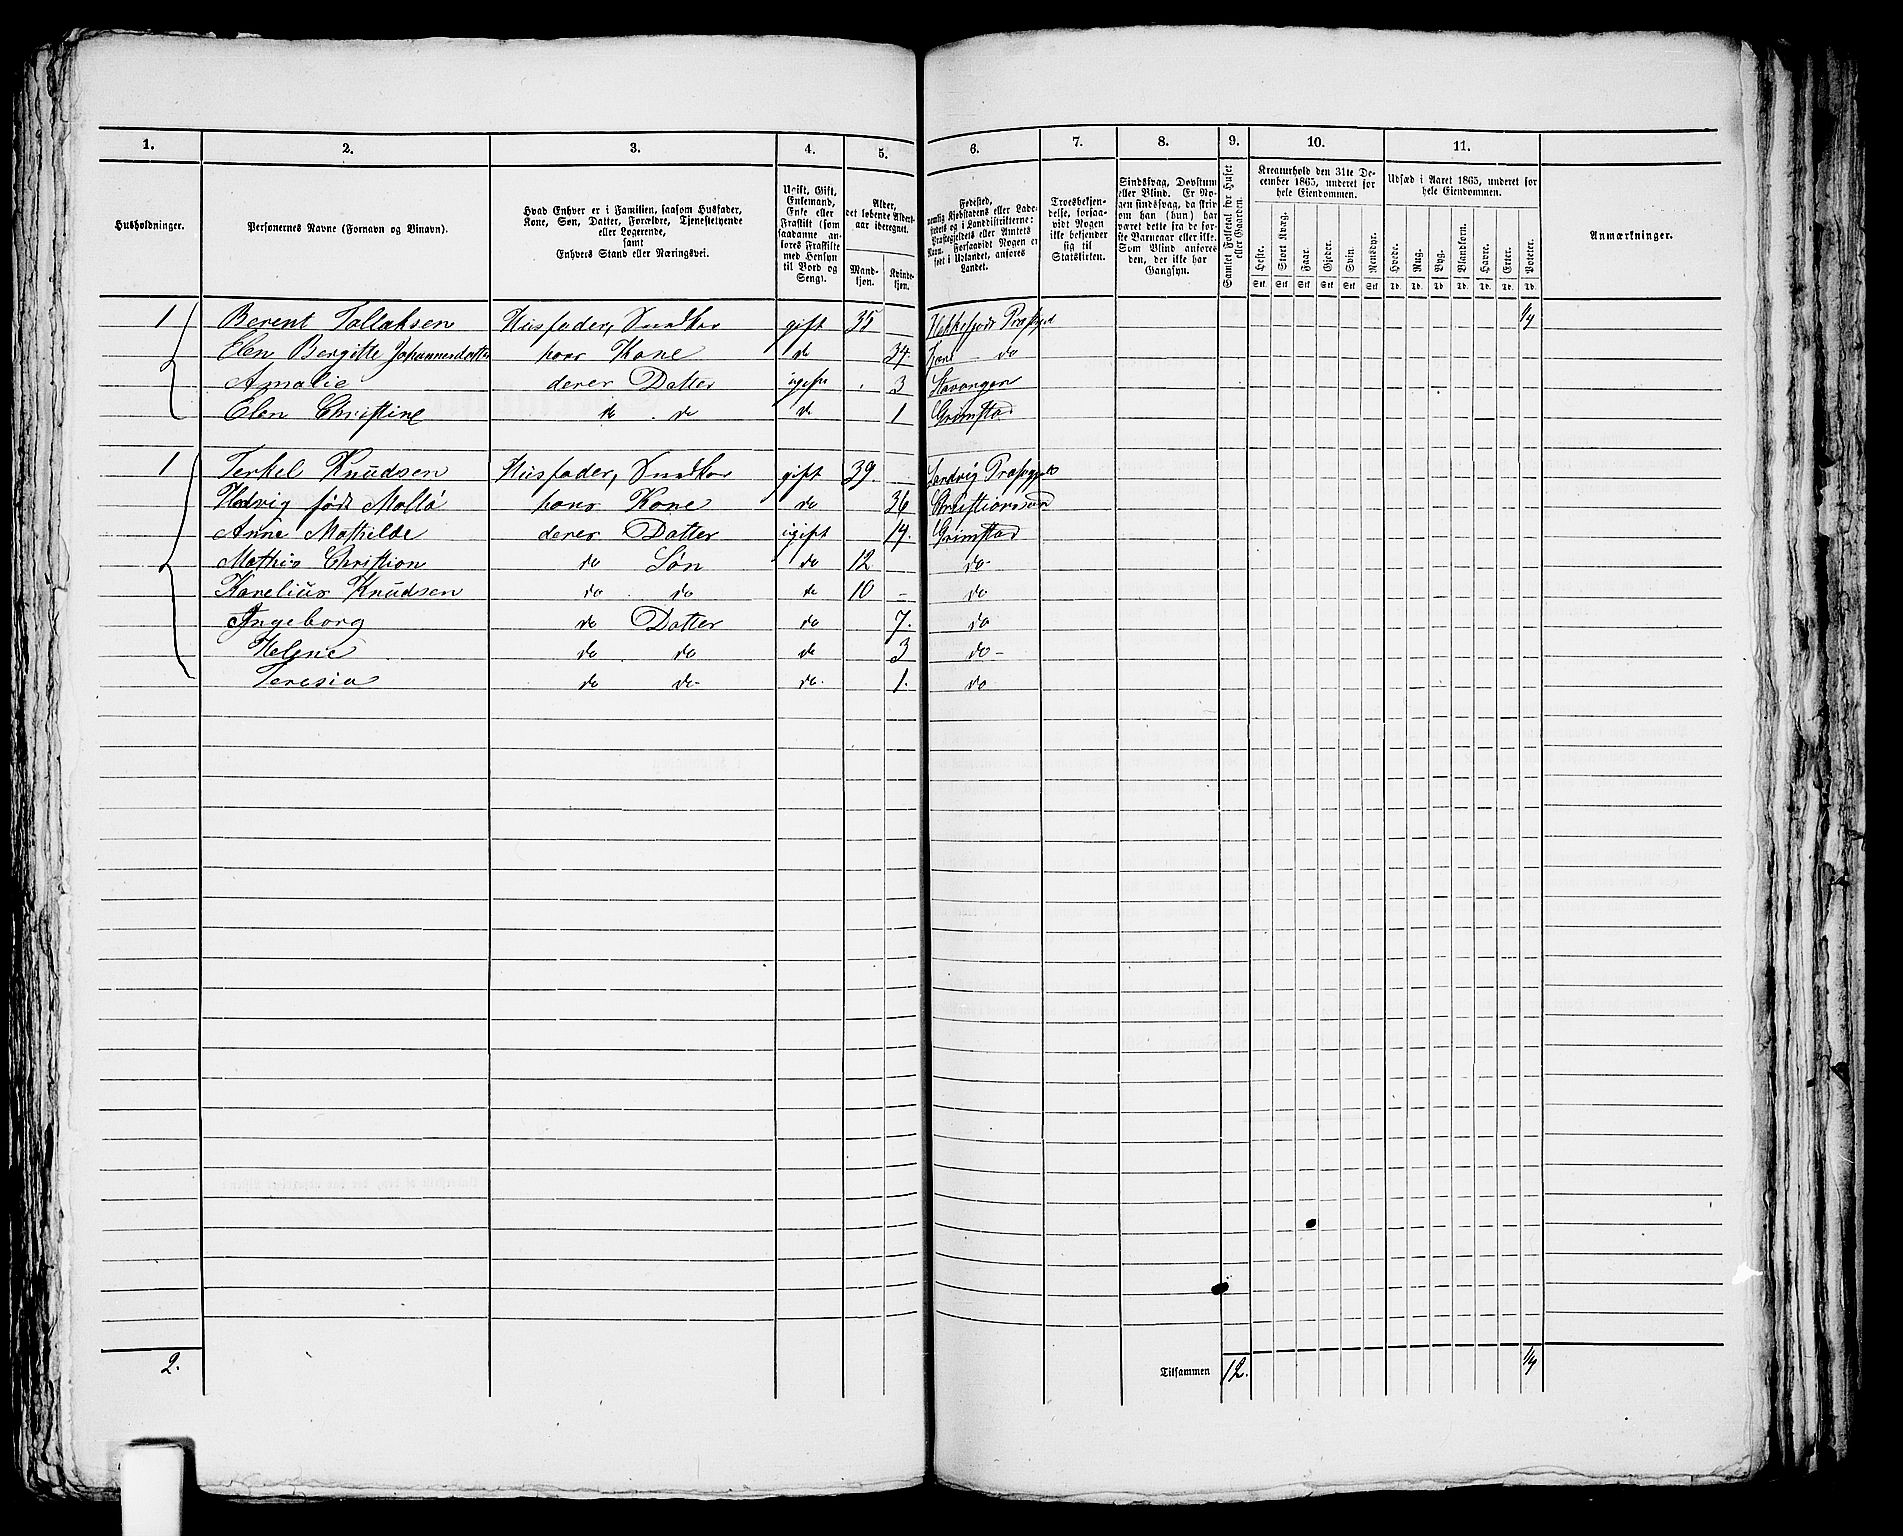 1. 2. 3. 4. 5. 6. 7. 8. 9. 10. 11.
Husholdninger.
Personernes Navne (Fornavn og Binavn).
Hvad Enhver er i Familien, saasom Husfader,
Kone, Søn, Datter, Forældre, Tjenestetyende
eller Logerende,
samt
Enhvers Stand eller Næringsvei.
Ugift, Gift,
Enkemand,
Enke eller
Fraskilt (som
saadanne an-
føres Fraskilte
med Hensyn
til Bord og
Seng).
Alder,
det løbende Alders-
aar iberegnet.
Mand-
kjøn.
Kvinde-
kjøn.
Fødested,
nemlig Kjøbstadens eller Lade-
stedets og i Landdistrikterne:
Præstegjeldets eller Amtets
Navn. Forsaavidt Nogen er
født i Udlandet, anføres
Landet.
Troesbekjen-
delse, forsaa-
vidt Nogen
ikke bekjender
sig til
Statskirken.
Sindssvag, Døvstum
eller Blind. Er No-
gen sindssvag, da skriv
om han (hun) har
været dette fra de før-
ste Barneaar eller ikke.
Som Blind anføres
den, der ikke har
Gangsyn.
Samlet Folketal for Huset
eller Gaarden.
Kreaturhold den 31te De-
cember 1865, underet for
hele Eiendommen.
Heste. Stort Kvæg. Faar. Gjeder. Svin. Rensdyr.
Stk Stk Stk Stk Stk Stk
Udsæd i Aaret 1865, underet for
hele Eiendommen.
Hvede. Rug. Byg. Blandkorn. Havre. Erter. Poteter.
Td. Td. Td. Td. Td. Td. Td.
Anmærkninger.
1 Berent Tallaksen Husfader, gift 35 Præstgjd 1/4
Elen Bergitte Johannesdatter hans Kone do 34. do
Amalie deres Datter ugift 3 Stavanger
Elen Christine do do do 1 Grimstad
1 Terkel Knudsen Husfader, gift 39. Landvig Præstgjeld
Hedvig født Mollö hans Kone do 36 Christianssand
Anne Mathilde deres Datter ugift 14. Grimstad
Mathis Christian do Søn do 12 do
Karelius Knudsen do do do 10 - do
Ingeborg do Datter do 7. do
Helene do do do 3 do
Teresia do do do 1. do
2. Tilsammen 12. 1/4